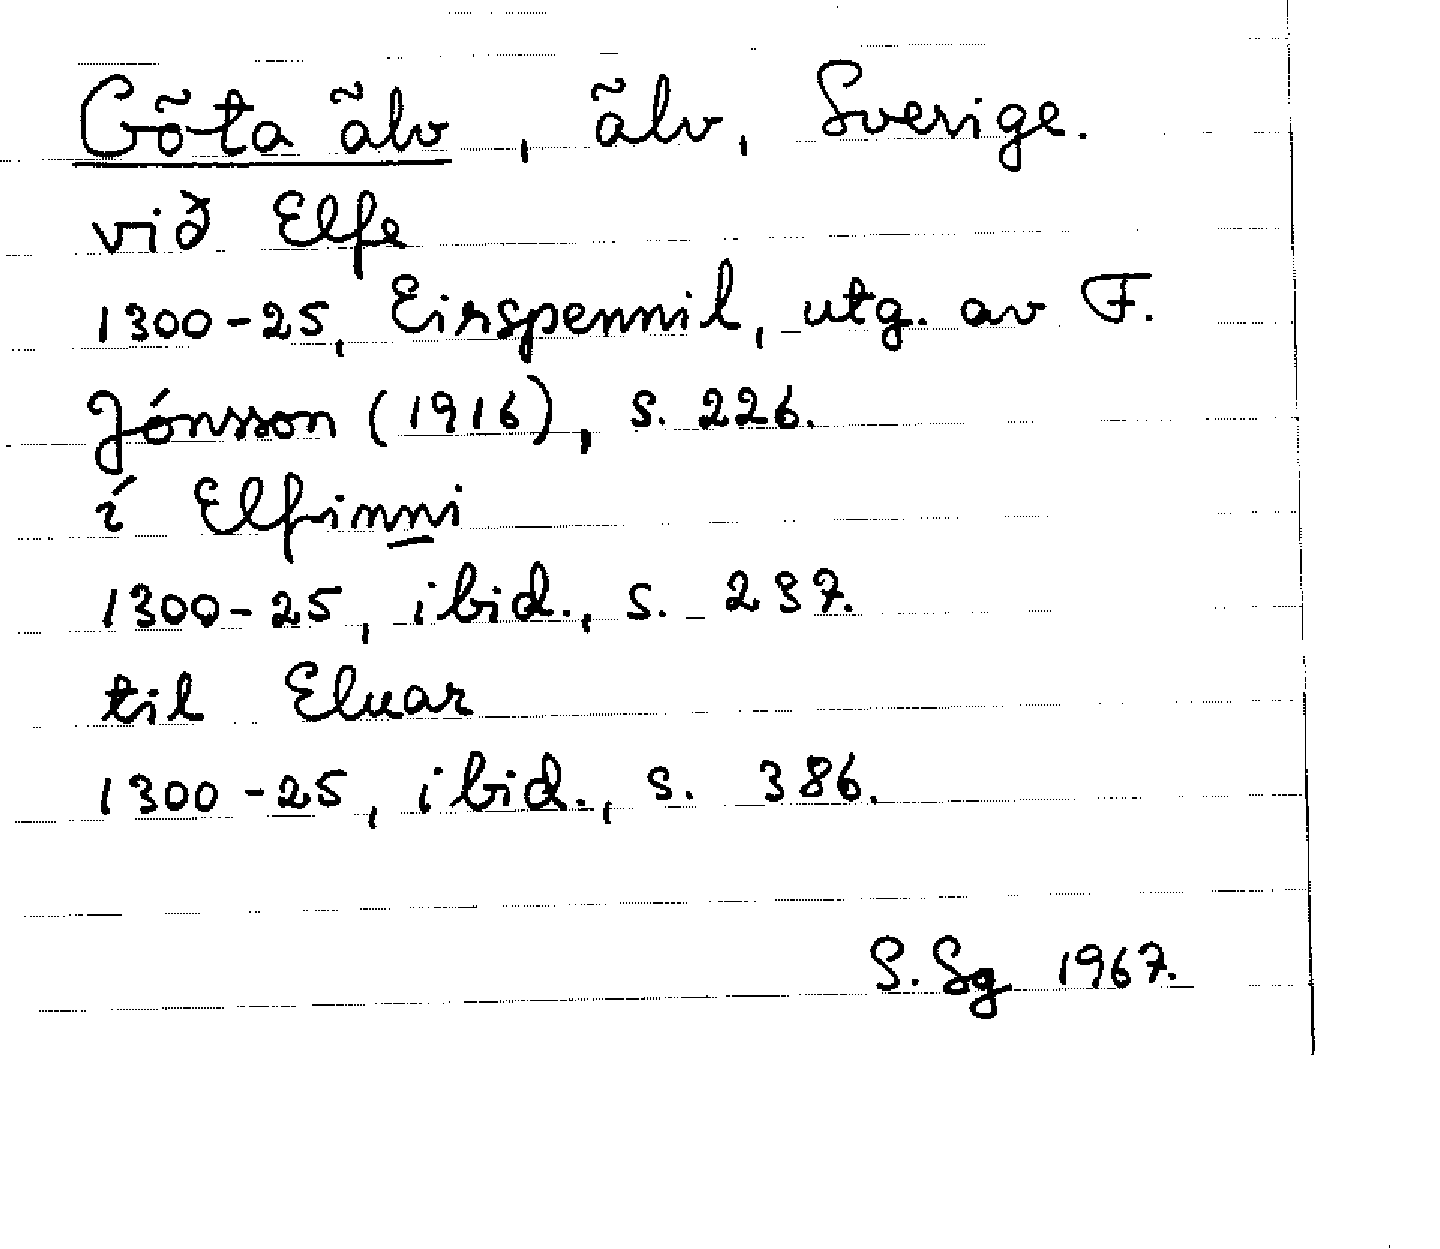 Göta älv, älv, Sverige.
við Elfe
1300-25, Eirspennil, utg. av F.
Jónsson (1916), s. 226.
í Elfinni
1300-25, ibid., s. 237.
til Eluar
1300-25, ibid., s. 386.
S. Sg 1967.